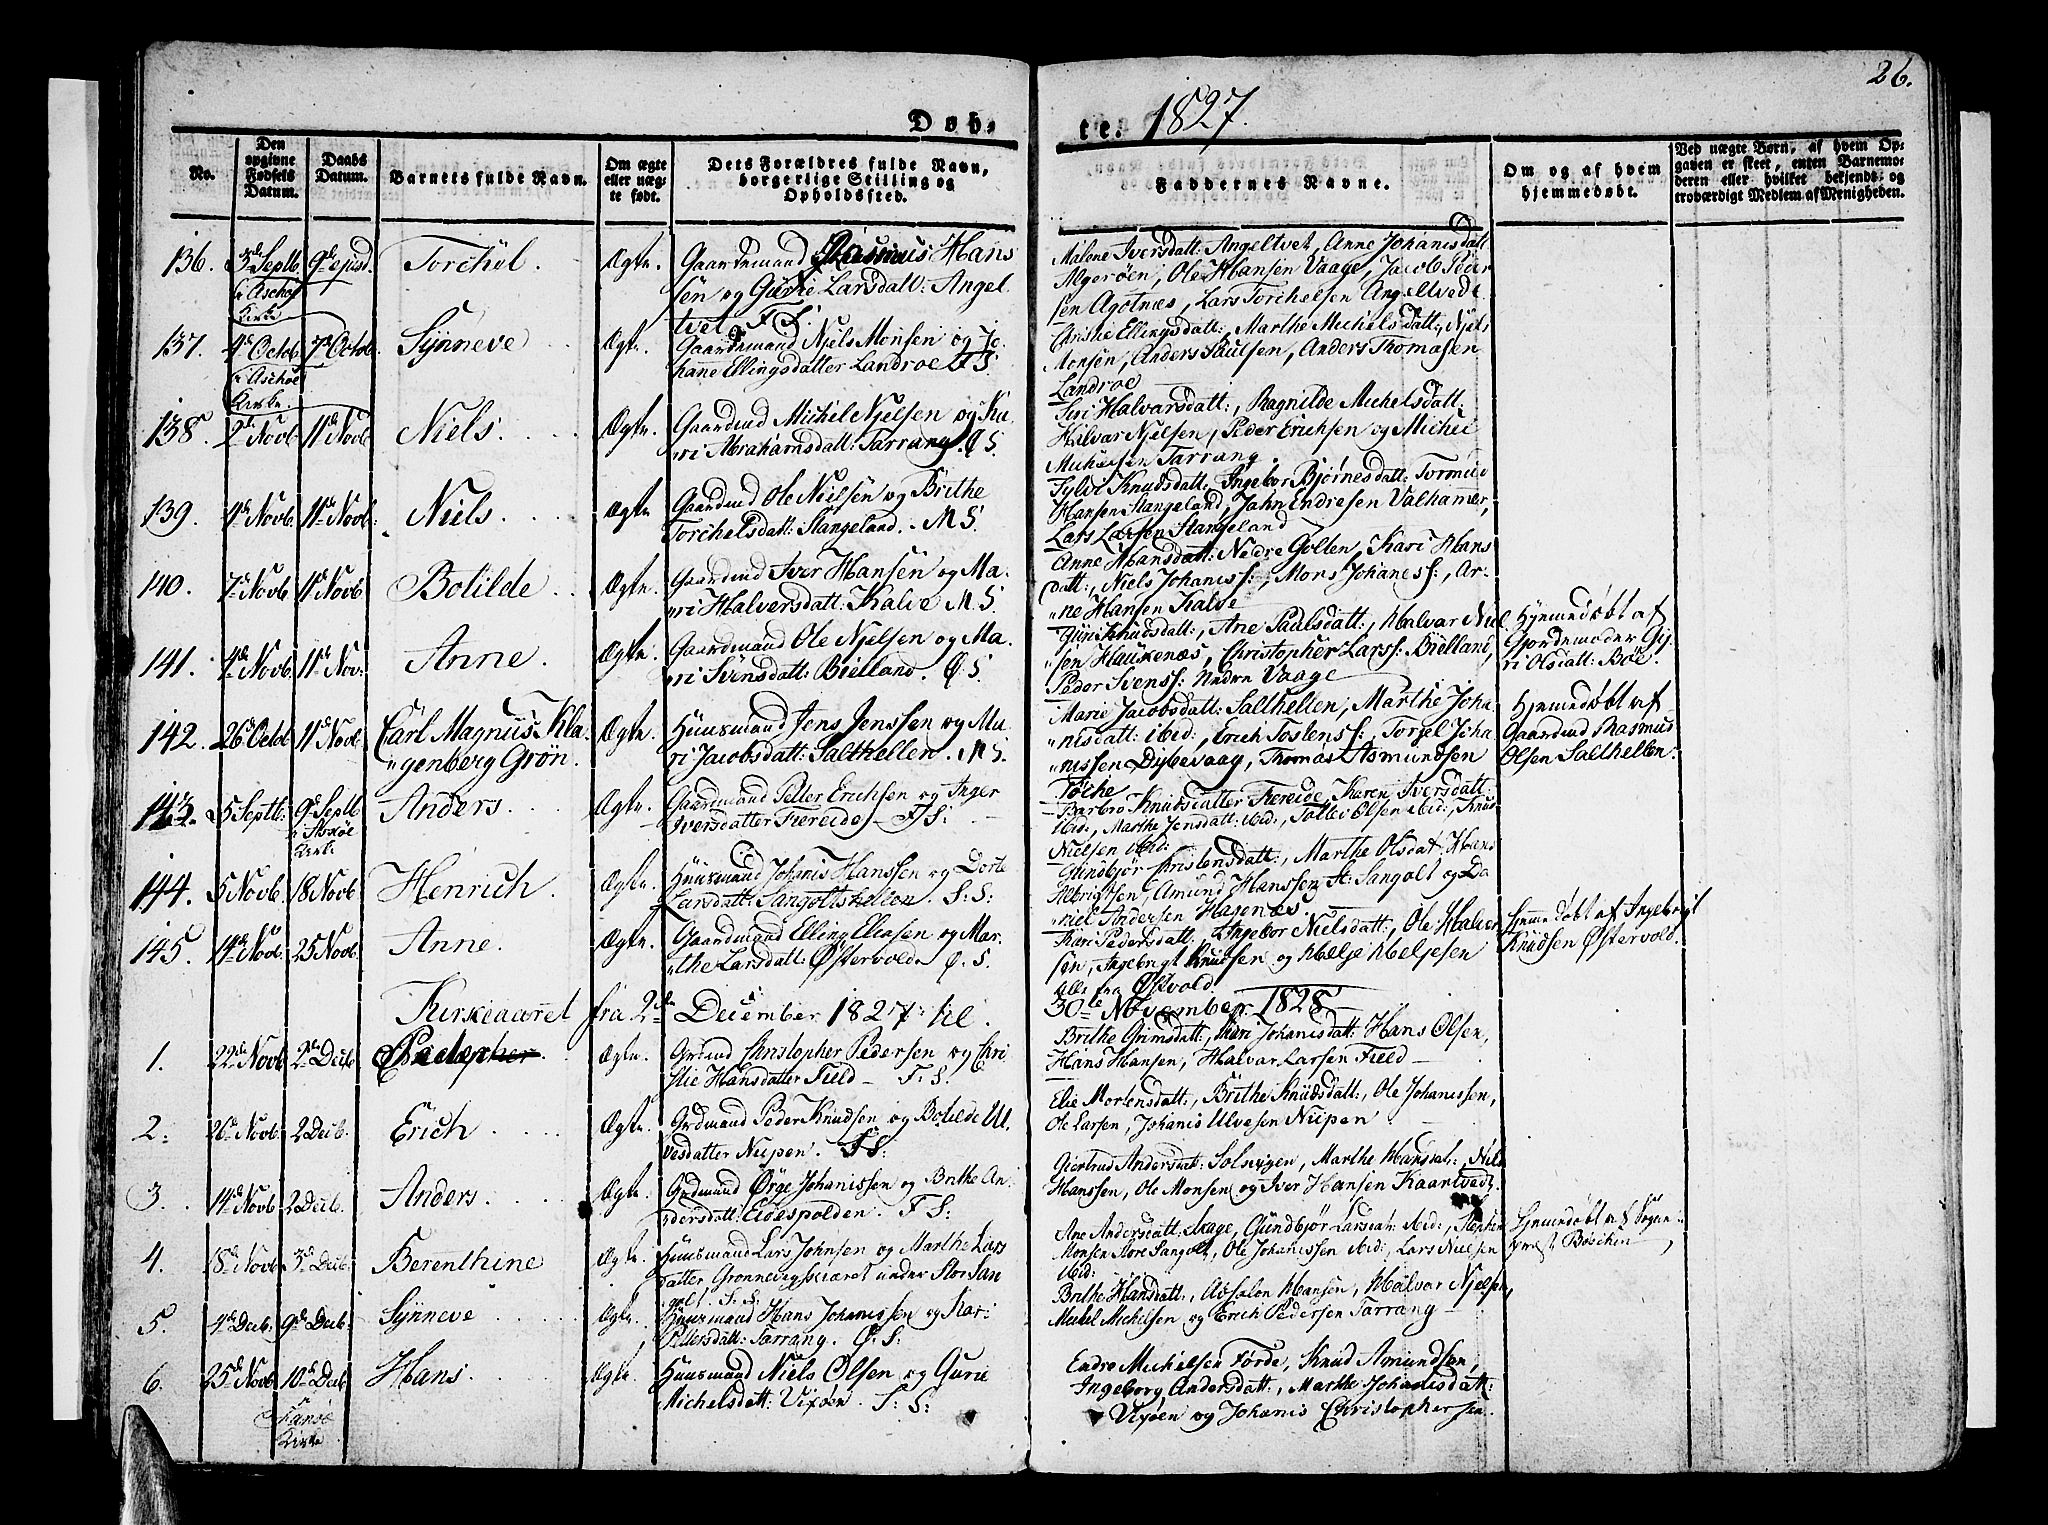 26.
Døb-
te. 1827.
No.
Den opgivne Fødsels Datum.
Daabs Datum.
Barnets fulde Navn.
Om ægte eller uægte født.
Dets Forældres fulde Navn, borgerlige Stilling og Opholdssted.
Faddernes Navne.
Om og af hvem hjemmedøbt.
Ved uægte Børn, af hvem Opgaven er skeet, enten Barnemoderen eller hvilket bekjendt og troværdigt Medlem af Menigheden.
136. 3de Septb. 9de ejusd. i Aschøe Kirke
Torchel.
Ægte.
Gaardemand Rasmus Hans
sen og Gurie Larsdatt: Angel
tvet F. S.
Malene Iversdatt: Angeltvet, Anne Johanisdatt:
Algerøen, Ole Hansen Vaage, Jacob Peder
sen Agotnæs, Lars Torchelsen Angeltvedt
137. 4de Octob. 7de Octob. i Aschøe Kirke.
Synneve
Ægte.
Gaardemand Niels Monsen og Jo-
hane Ellingsdatter Landroe F S.
Christie Ellingsdatt:, Marthe Michelsdatt:, Njels
Monsen, Anders Paulsen, Anders Thomasen
Landroe
138. 2de Novb 11te Novb.
Niels.
Ægte.
Gaardmd Michel Njelsen og Ka-
ri Abrahamsdatt: Tarrang. Ø S.
Siri Halvarsdatt:, Ragnilde Michelsdatt:
Halvar Njelsen, Peder Erichsen og Michel
Michelsen Tarrang.
139. 4de Novb. 11te Novb:
Niels.
Ægte
Gaardmd Ole Nielsen og Brithe
Torchelsdatt: Stangeland. M S.
Sylvi Knudsdatt: Ingebor Bjørnesdatt: Tormod
Hansen Stangeland, Jahn Endresen Valhamer,
Lars Larsen Stangeland
140. 7de Novb 11te Novb
Botilde
Ægte.
Gaardmd Iver Hansen og Ma-
ri Halversdatt: Kalve M. S.
Anne Hansdatt: Nedre Golten, Kari Hans
datt:, Niels Johaness:, Mons Johaness:, Ar-
ne Hansen Kalve
141. 4de Novb. 11te Nov:
Anne.
Ægte.
Gaardmand Ole Njelsen og Ma-
ri Svensdatt: Bielland. Ø S.
Guri Knudsdatt:, Ane Paulsdatt:, Halvar Niel
sen Haukenæs, Christopher Larss: Bielland,
Peder Svenss: Nedre Vaage
Hjemmedøbt af
Gjordemoder Gu
ri Olsdatt: Bøe.
142. 26de Octob 11te Novb
Carl Magnus Kla
genberg Grøn.
Ægte.
Huusmand Jens Jenssen og Ma-
ri Jacobsdatt: Salthellen. M S.
Marie Jacobsdatt: Salthellen, Marthe Joha
nisdatt: ibid:, Erich Tostenss:, Torgel Joha
nissen Dybevaag, Thomas Asmundsen
Tøche
Hjemmedøbt af
Gaardmd Rasmus
Olsen Salthellen.
143. 5 Septb: 9de Septb i Askøe Kirke
Anders
Ægte.
Gaardmand Petter Erichsen og Inger
Iversdatter Fiereide - F S.
Barbro Knudsdatter Fiereide, Karen Iversdatt:
ibid:, Marthe Jensdatt: ibid:, Tollev Olsen ibid:, Knud
Nielsen ibid:
144. 5 Novb. 18 Novb
Henrich.
Ægte.
Huusmand Johanis Hanssen og Dorte
Larsdatt: Sangoltshellen. S: S:
Gundbjør Christensdatt:, Marthe Olsdat:, Hans
Albrigtsen, Amund Hanssen St: Sangolt og Da
niel Andersen Hagenæs.
145. 14de Novb. 25 Novb
Anne.
Ægte.
Gaardmand Elling Eliasen og Mar-
the Larsdatt: Østervold. Ø. S.
Kari Pedersdatt:, Ingebor Nielsdatt:, Ole Halver
sen, Ingebrigt Knudsen og Helje Heljesen
alle fra Østvold.
Hjemmedøbt af Ingebrigt
Knudsen Østervold.
Kirkeaaret fra 2den December 1827 til 30te November 1828
1. 22de Novb 2den Decb
Ægte.
Grdmd Christopher Pedersen og Chri
stie Hansdatter Field - F: S.
Brithe Grimsdatt:, Johanisdatt: Hans Olsen,
Hans Hansen, Halvar Larsen Field -
2. 26de Novb. 2 Decb.
Erich
Ægte.
Grdmand Peder Knudsen og Botilde Ul-
vesdatter Nipen. F S:
Elie Mortensdatt:, Brithe Knudsdatt:, Ole Johanissen,
Ole Larsen, Johanis Ulvesen Nipen
3. 14de Novb 2 Decb.
Anders.
Ægte.
Grdmand Ørge Johanissen og Brithe An-
dersdatt: Eidespolden. F S:
Giertrud Andersdat: Solsvigen, Marthe Hansdat:, Niels
Hanssen, Ole Monsen og Iver Hansen Kaartvedt.
4. 18de Novb. 3de Decb.
Berenthine
Ægte.
Huusmand Lars Johnsen og Marthe Lars
datter Grønnevigskiæret under Stor San
golt. S. S:
Ane Andersdatt: Skage, Gundbjør Larsdat: ibid:, Stephen
Monsen Store Sangolt, Ole Johanissen ibid:, Lars Nielsen
ibid:
Hjemmedøbt af Sogne
præst
5. 4de Decb. 9de Decb.
Synneve
Ægte.
Huusmand Hans Johanissen og Kari
Pettersdatt: Tarrang. Ø. S:
Brithe Hansdatt:, Absalon Hansen, Halvar Njelsen,
Michel Michelsen og Erich Pedersen Tarrang -
6. 25de Novb. 10de Decb. i Fanøe Kirke
Hans.
Ægte.
Huusmand Niels Olsen og Gurie
Michelsdatt: Vixøen. S: S:
Endre Michelsen Førde, Knud Amundsen,
Ingeborg Andersdatt:, Marthe Johanisdatt:
Vixøen og Johanis Christophersen.